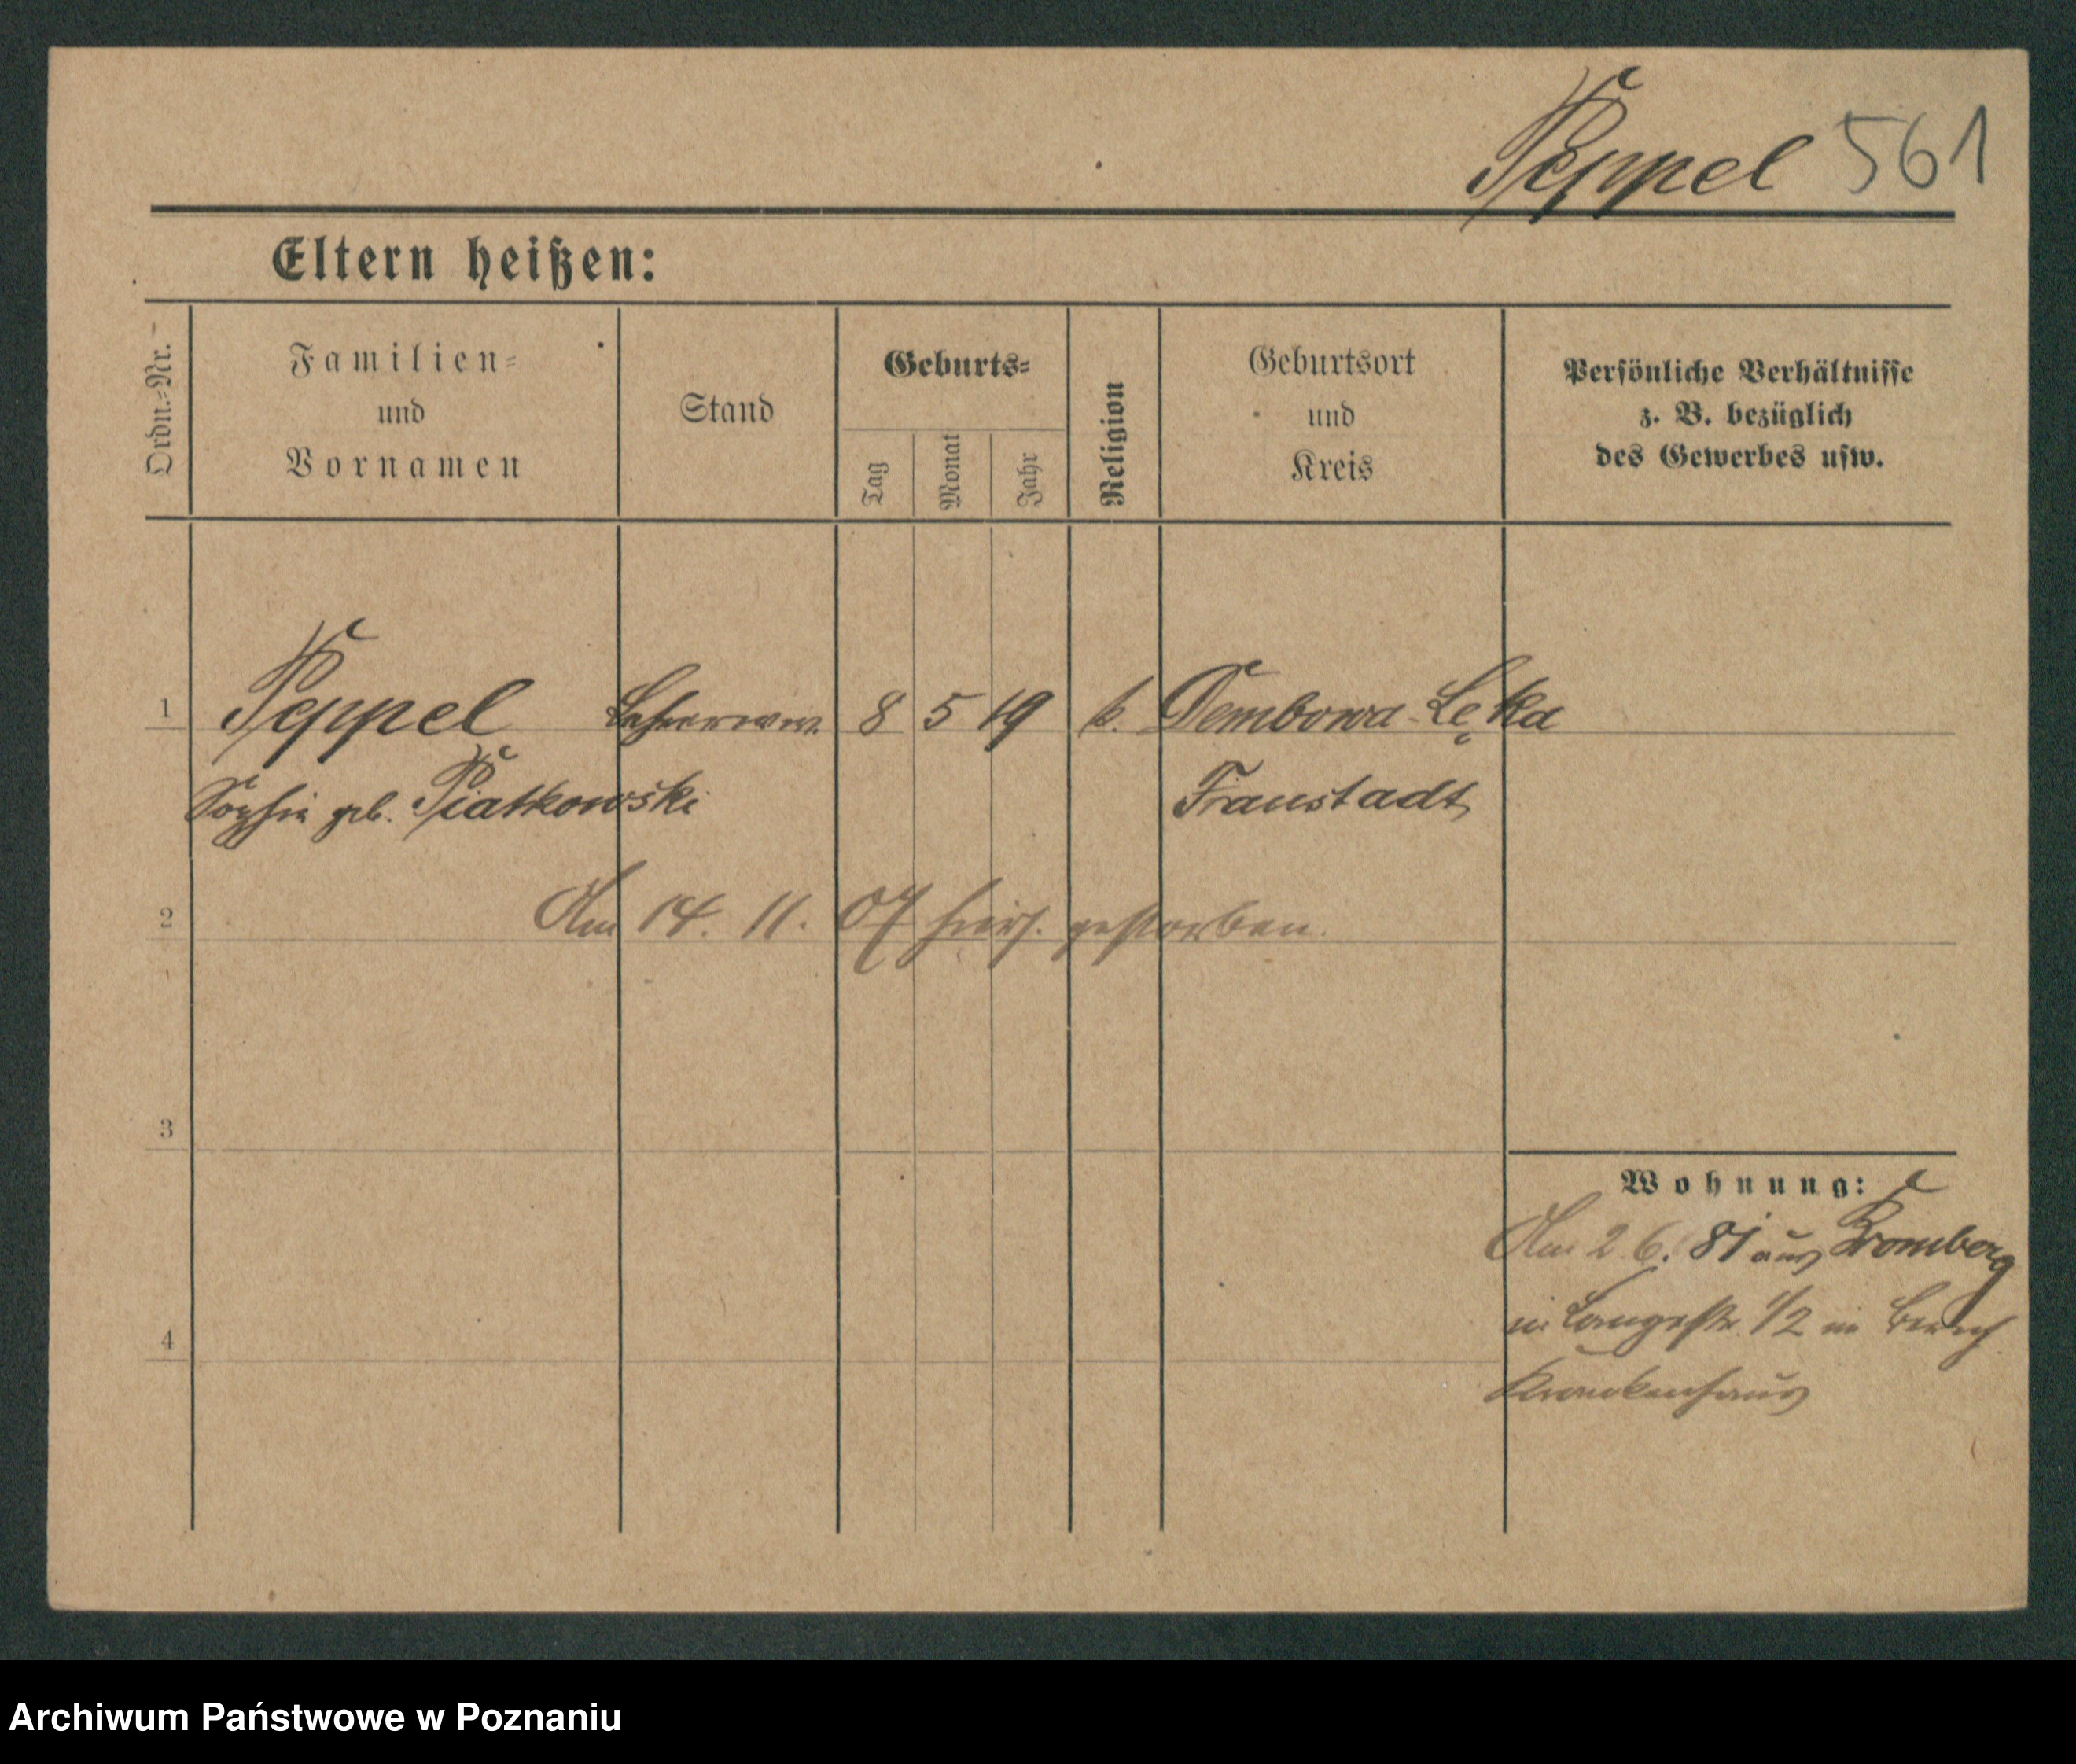 Peppel 561
Eltern heißen:
Ordn.-Nr.
Familien-
und
Vornamen
Stand
Geburts-
Tag
Monat
Jahr
Religion
Geburtsort
und
Kreis
Persönliche Verhältnisse
z. B. bezüglich
des Gewerbes usw.
1 Peppel Lehrerww. 8 5 19 k. Dembowa-Lęka
Sophie geb. Piatkowski Fraustadt
2 Am 14. 11. 07 hiers. gestorben.
3
Wohnung:
Am 2. 6. 81 aus Bromberg
in Langestr. 1/2 im
4
Krankenhaus
Archiwum Państwowe w Poznaniu